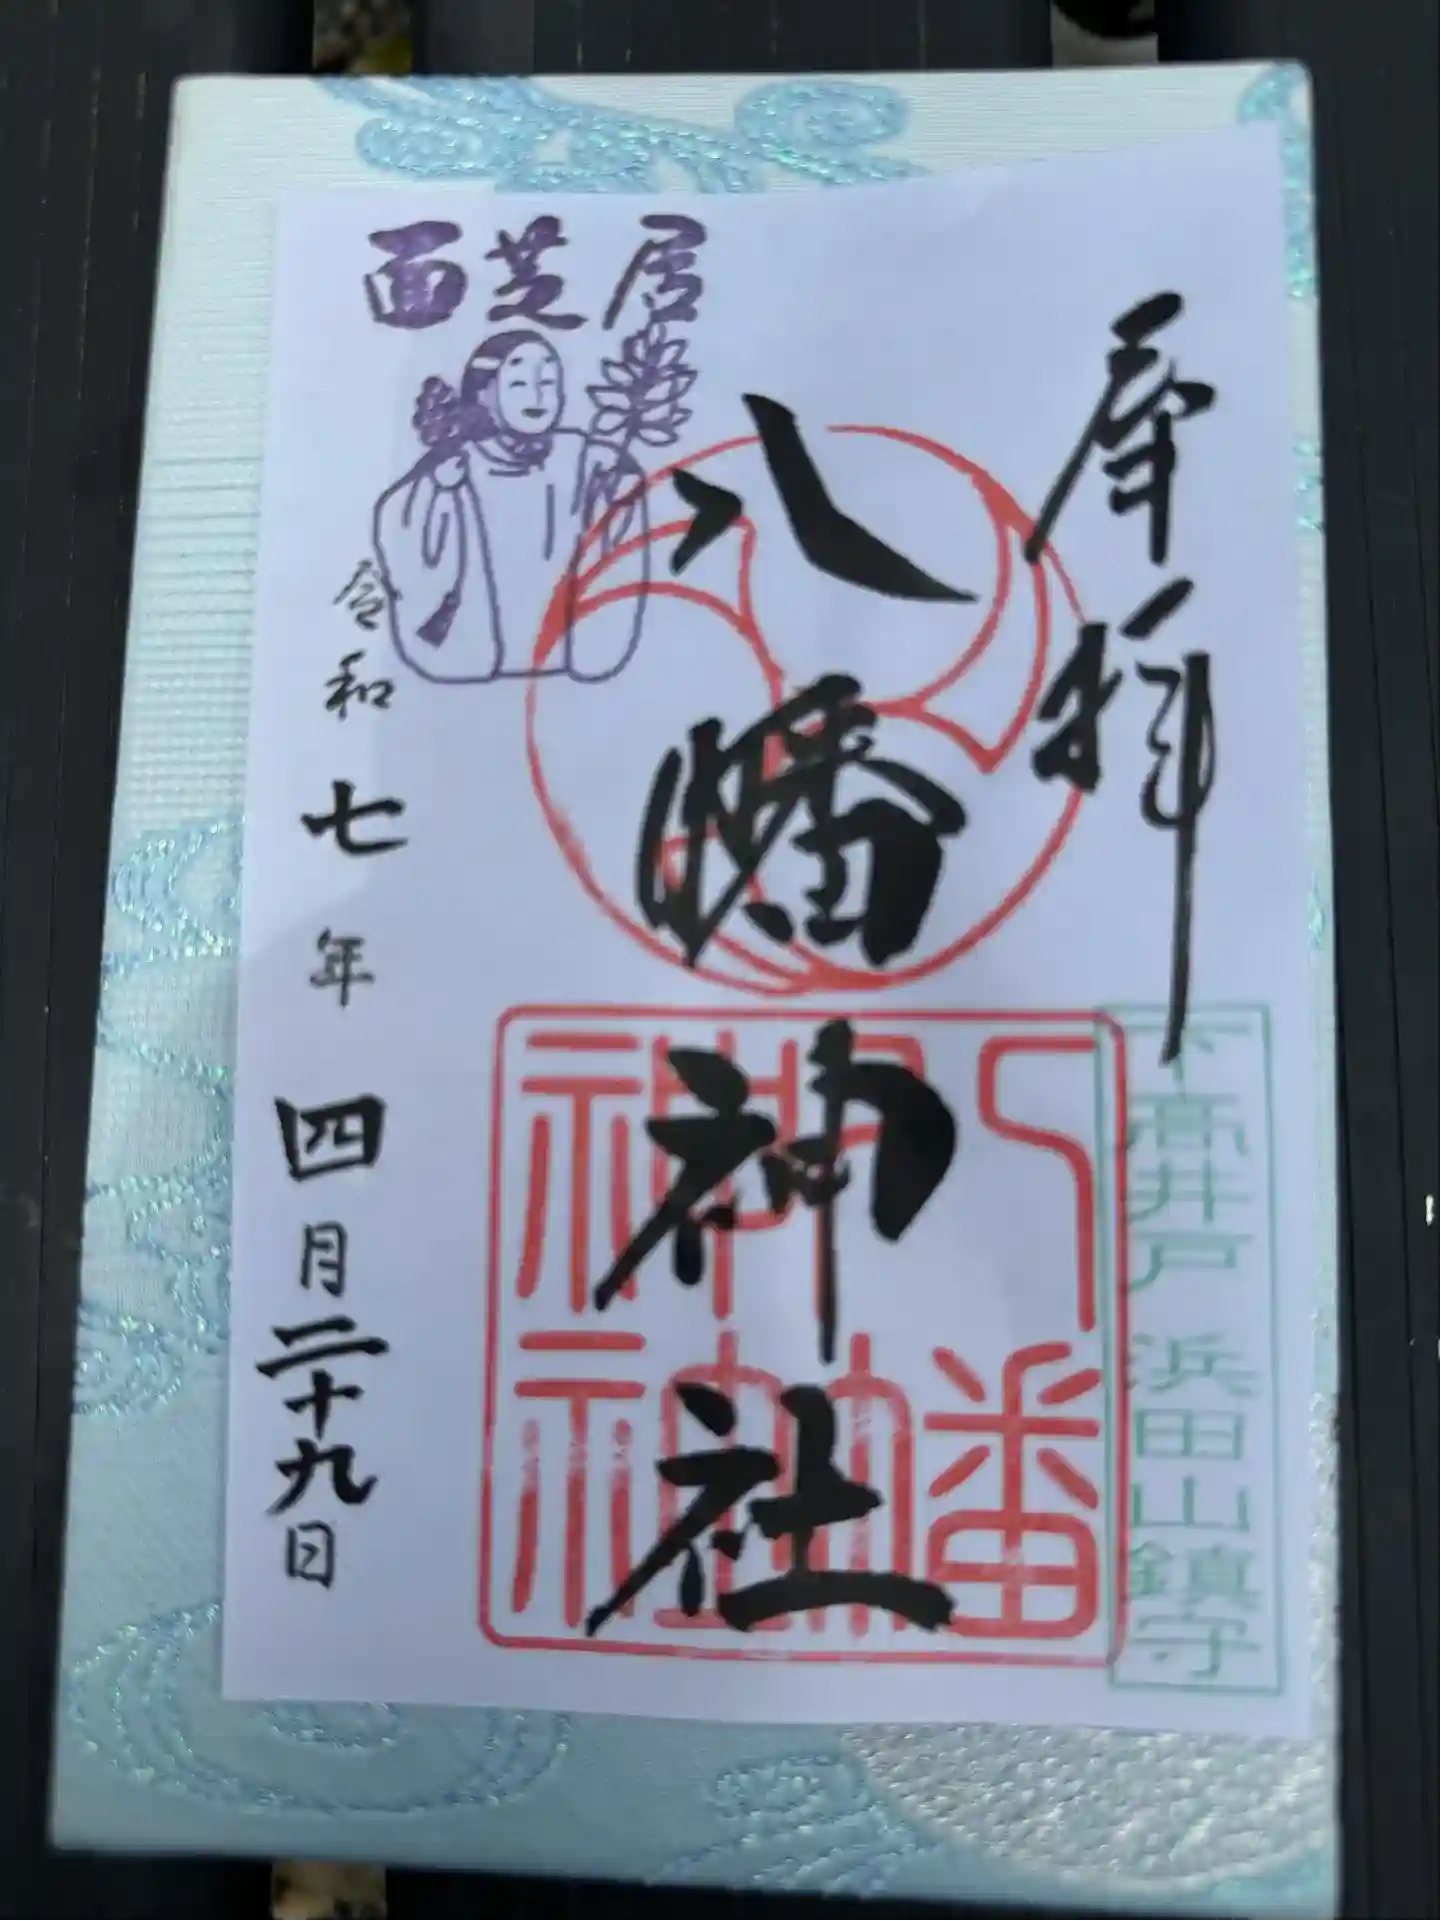 奉拝
下高井戸 浜田山鎮守
八幡神社
八幡
神社
面芝居
令和七年四月二十九日